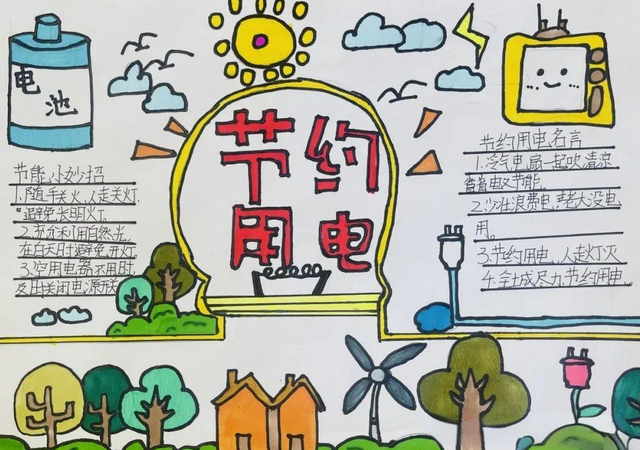 电池
节约
用电
节能小妙招
1.随手关火,人走关灯
避免长明灯.
2.充分利用自然光,
在白天时避免开灯.
3.空用电器不用时,
及时关闭电源开
节约用电名言
1.冷气电扇一起吹,清凉
省电又节能.
2.少壮浪费电,老大没电
用。
3.节约用电、人走灯灭
4.全城尽力节约用电.